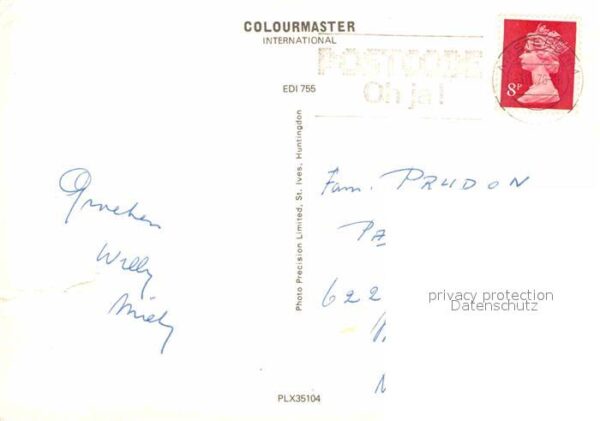 COLOURMASTER
INTERNATIONAL
POSTCODE
Oh ja!
8P
EDI 755
Photo Precision Limited, St. Ives, Huntingdon
Groeten
Willy
Fam. PRUDON
PA
622
privacy protection
Datenschutz
PLX35104